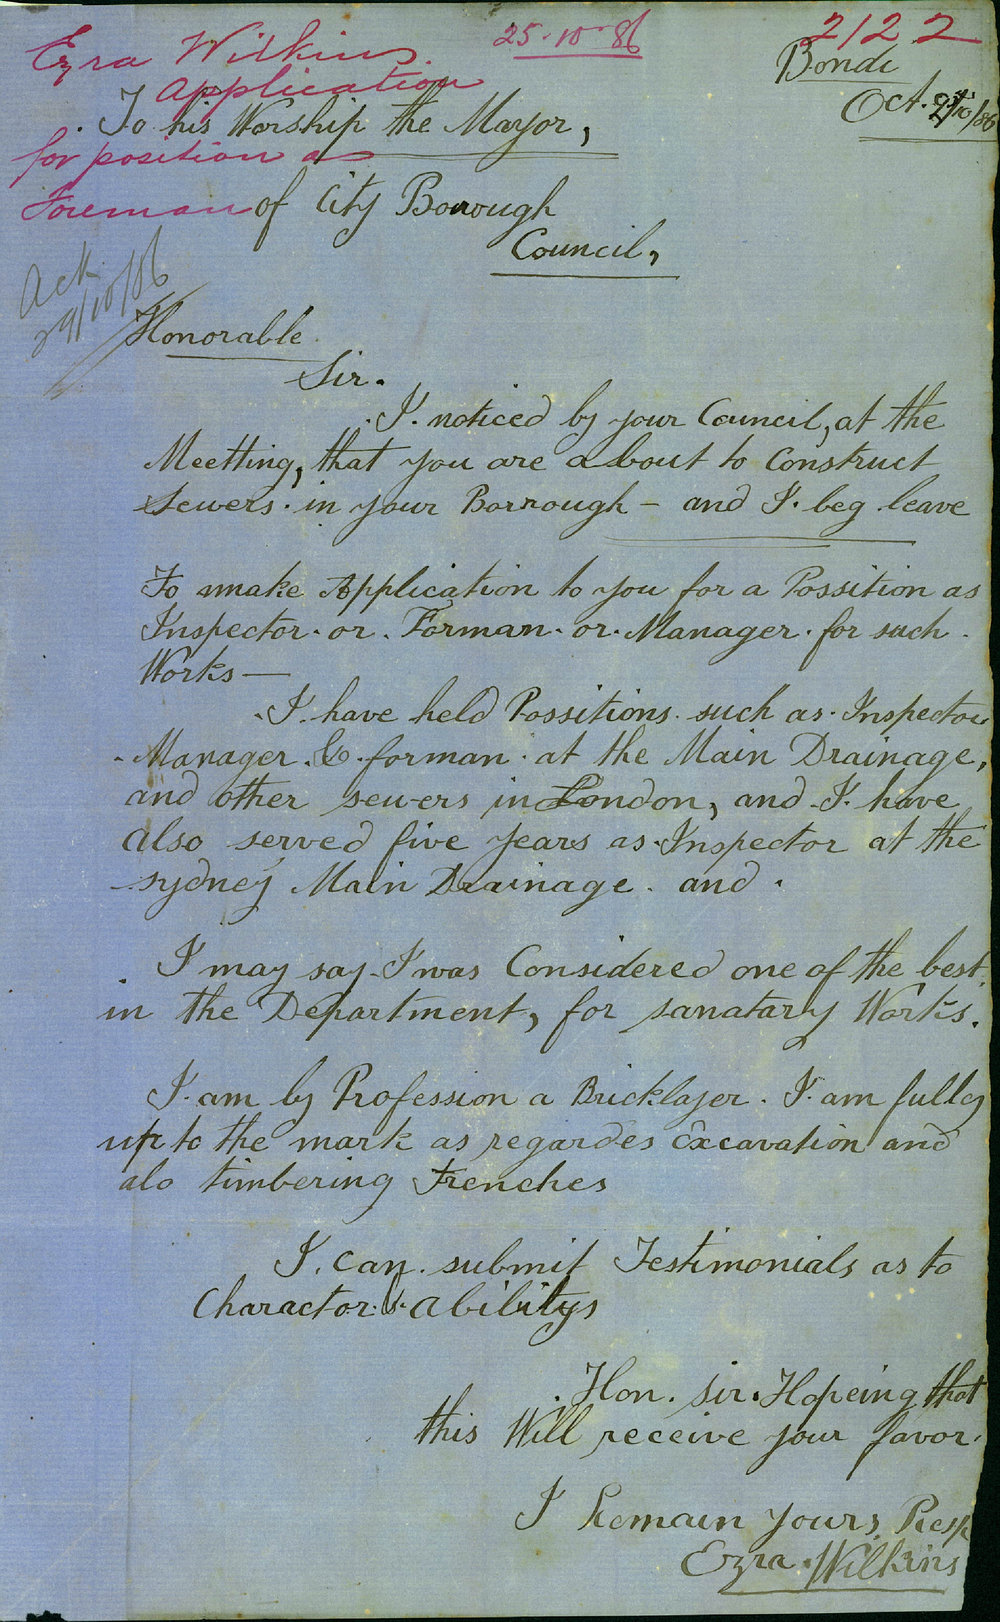 Ezra Wilkins
25.10.86
2122
application
for position as
Foreman
Ack
29/10/86
Bondi
Oct. 21/10/86
To his Worship the Mayor,
of City Borough
Council,
Honorable
Sir.
I. noticed by your Council, at the
Meetting, that you are about to Construct
Sewers. in your Borrough - and I. beg leave
To make Application to you for a Possition as
Inspector. or. Forman. or. Manager. for such.
Works —
I. have held Possitions. such as. Inspector
Manager. &. forman. at the Main Drainage,
and other sewers in London, and I. have
also served five years as Inspector at the
sydney Main Drainage. and.
I may say I was Considered one of the best
in the Department, for sanatary Works.
I. am by Profession a Bricklayer. I. am fully
up to the mark as regardes Excavation and
alo timbering Trenches
I. can. submit Testimonials as to
Charactor. &. abilitys
Hon. sir. Hopeing that
this Will receive your favor.
I Remain yours, Resp
Ezra. Wilkins